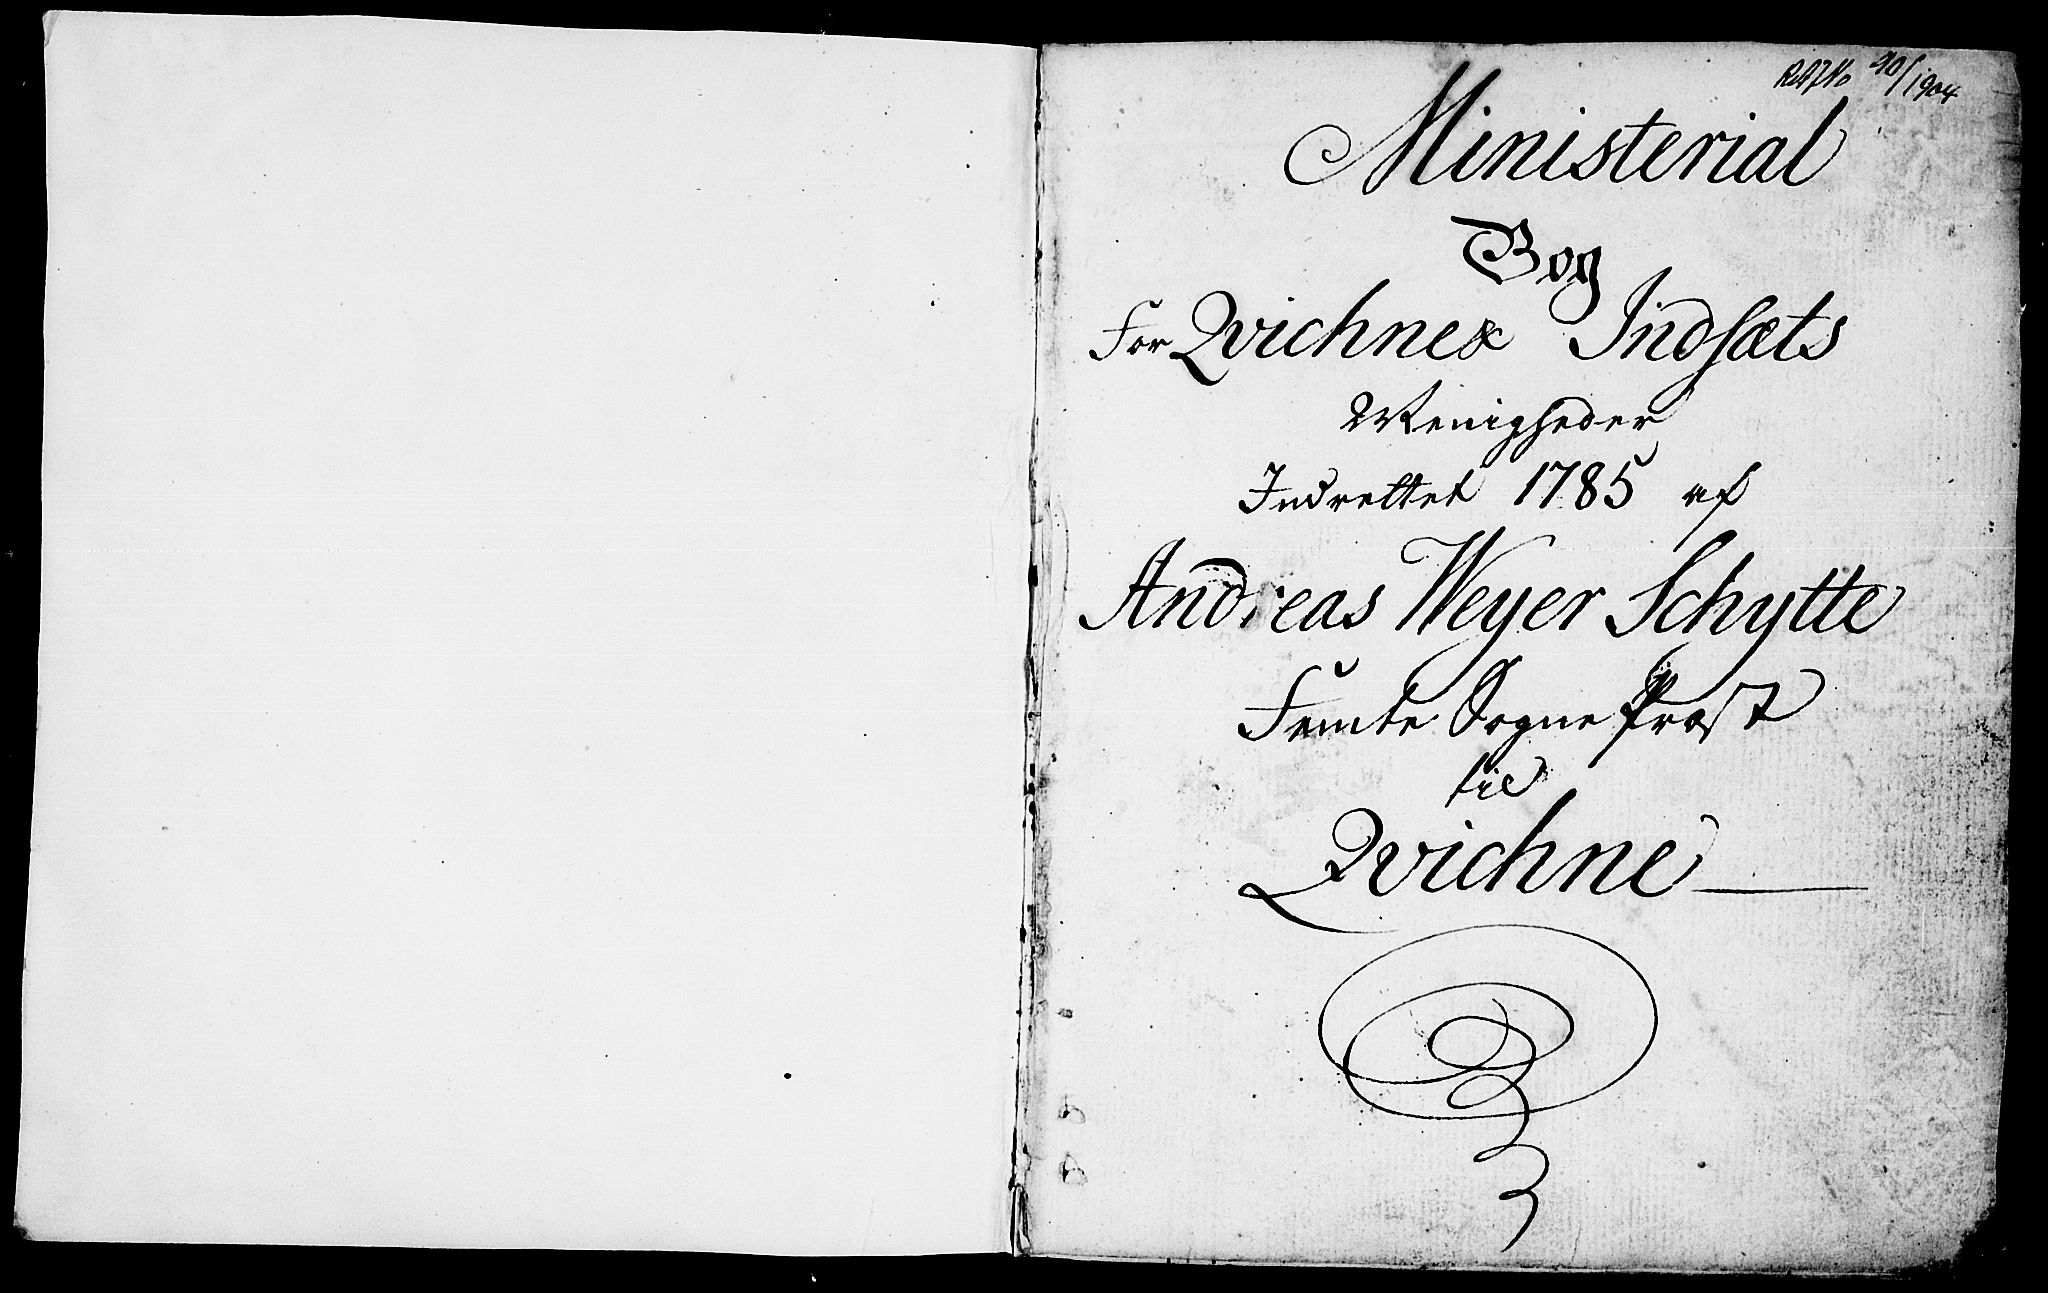 90/1904
Ministerial
Bog
For Qvichne & Indsæts
Menigheder
Indrettet 1785 af
Andreas Weyer Schytte
Femte Sogne Præst
til
Qvichne